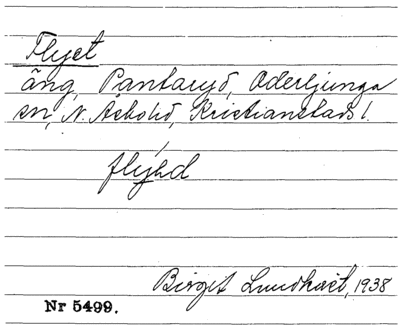 Flyet
äng, Pantaryd, Oderljunga
sn, N. Åsbo hd, Kristianstads l.
flyhd
Birgit Lundkvist, 1938
Nr 5499.